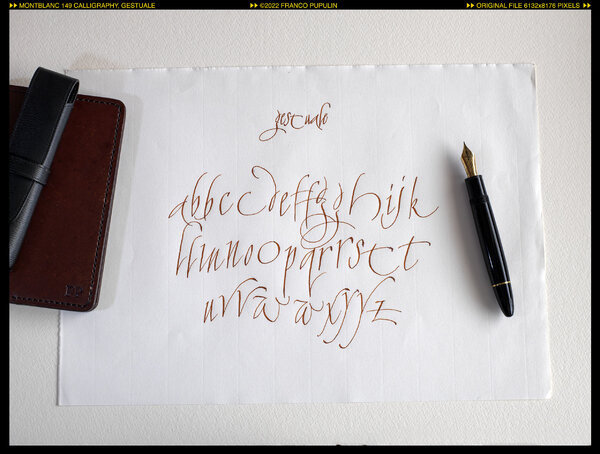 MONTBLANC 149 CALLIGRAPHY, GESTUALE
©2022 FRANCO PUPULIN
ORIGINAL FILE 6132x8176 PIXELS
gestuale
abbccdeffgghijk
llmnoopqrrstt